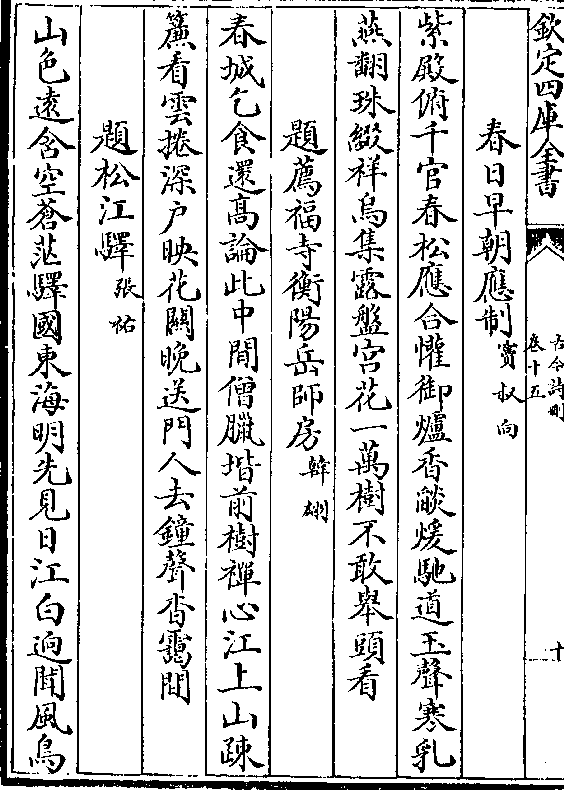 欽定四庫全書
古今詩刪
卷十五
十
春日早朝應制 竇叔向
紫殿俯千官春松應合懽御爐香燄煖馳道玉聲寒乳
燕翻珠綴祥烏集露盤宮花一萬樹不敢舉頭看
題薦福寺衡陽岳師房 韓翃
春城乞食還髙論此中閒僧臘堦前樹禪心江上山疎
簾看雲捲深户映花關晚送門人去鐘聲杳靄間
題松江驛 張祐
山色逺含空蒼茫驛國東海明先見日江白逈聞風鳥